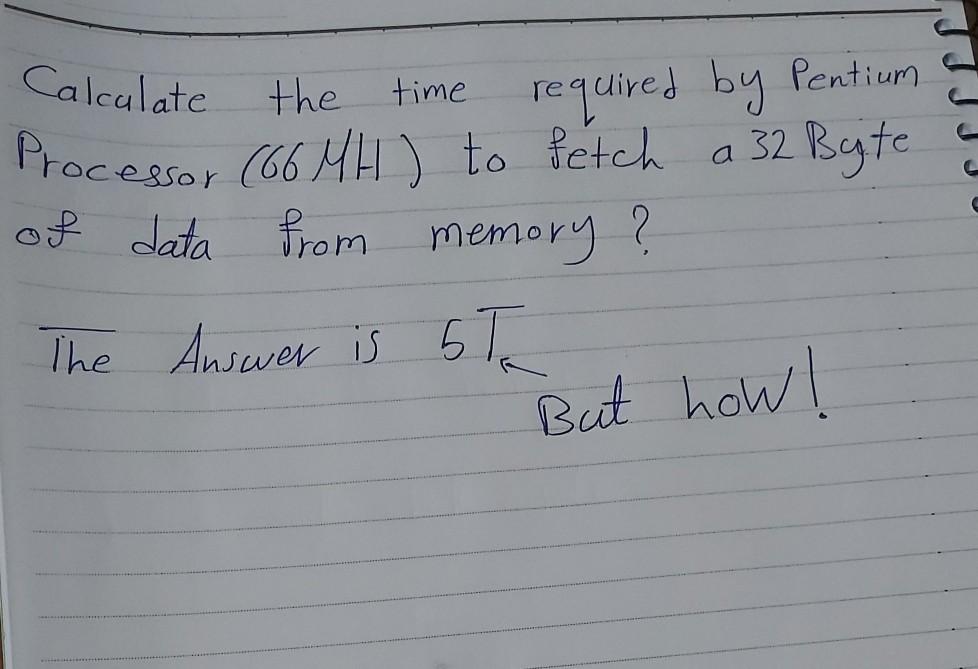 Calculate the time required by Pentium
Processor (66 MH) to fetch a 32 Byte
of data from memory ?
The Answer is 5T
But how!